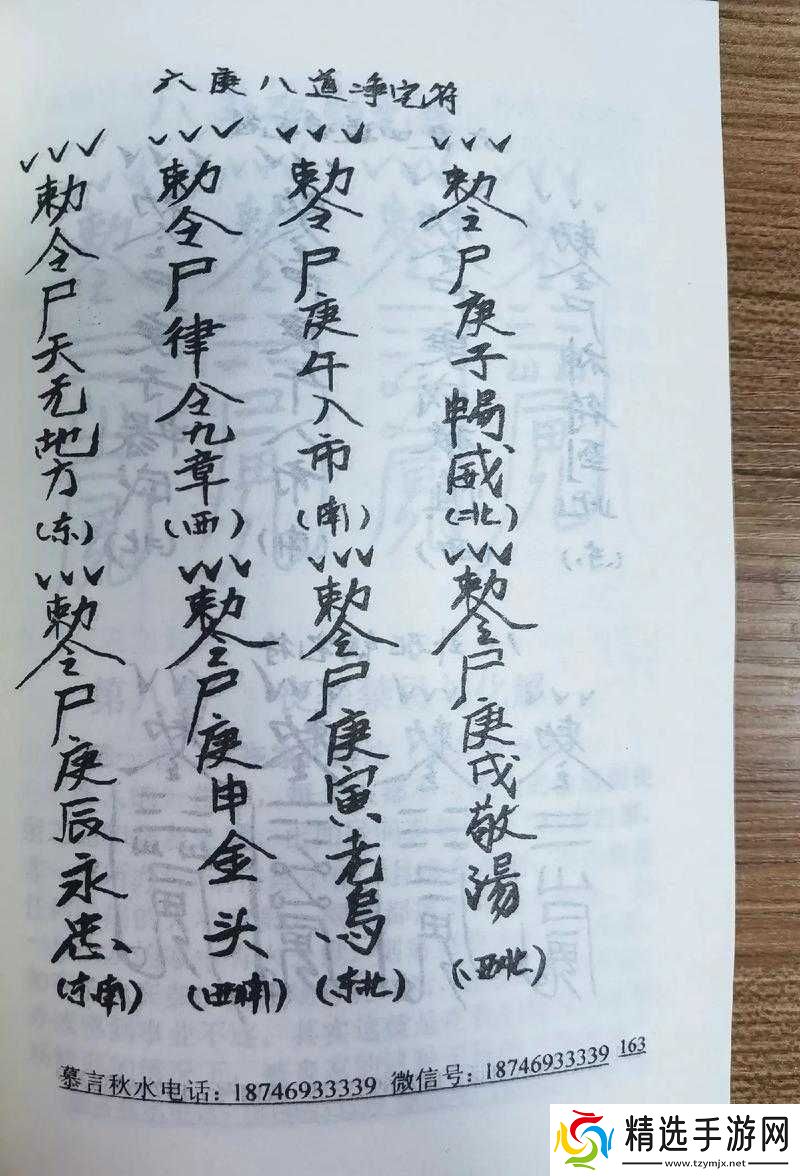 六庚八道净宅符
勅令尸庚子暢威(北)
勅令尸庚午入市(南)
勅令尸律令九章(西)
勅令尸天无地方(东)
勅令尸庚戌敬陽(西北)
勅令尸庚寅老鸟(东北)
勅令尸庚申金头(西南)
勅令尸庚辰永忠(东南)
慕言秋水电话：18746933339 微信号：18746933339 163
精选手游网
www.tzymjx.net